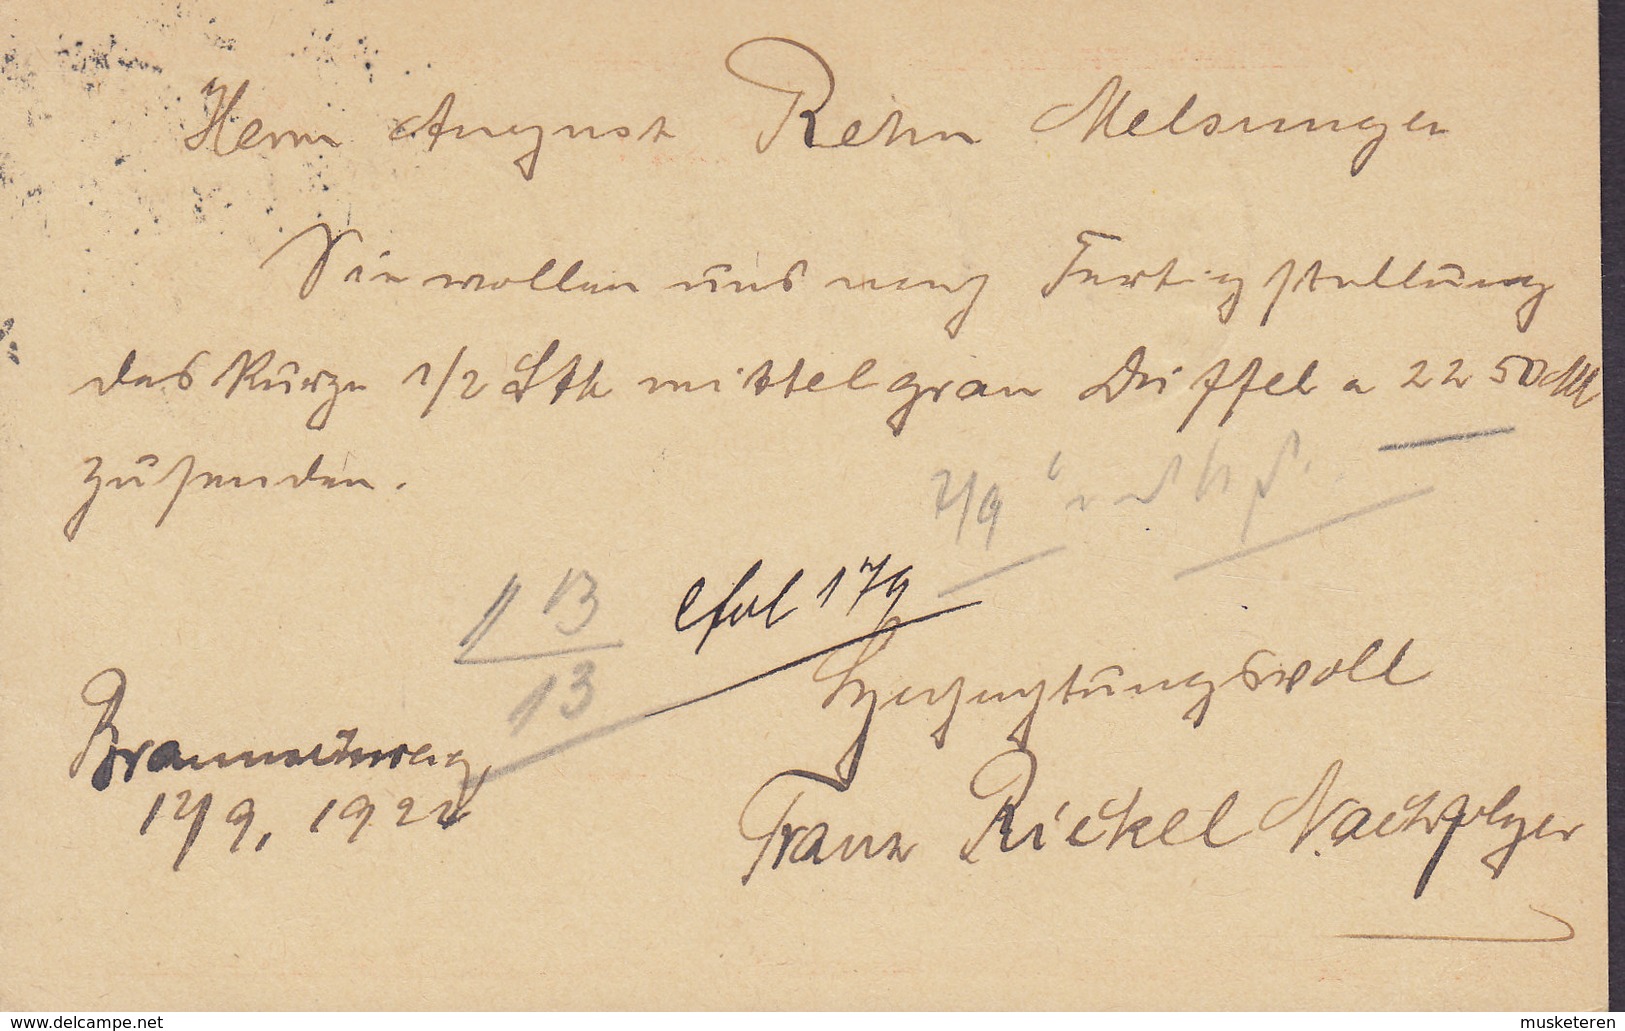 Herrn August Rehn Melsungen
Sie wollen uns noch Fertigstellung
des Kurze 1/2 Stk mittelgrau Düffel a 22 50 M
zusenden.
7/9
13
13
179
Hochachtungsvoll
12/9, 1922
Franz Rickel Nachfolger
www.delcampe.net
musketeren